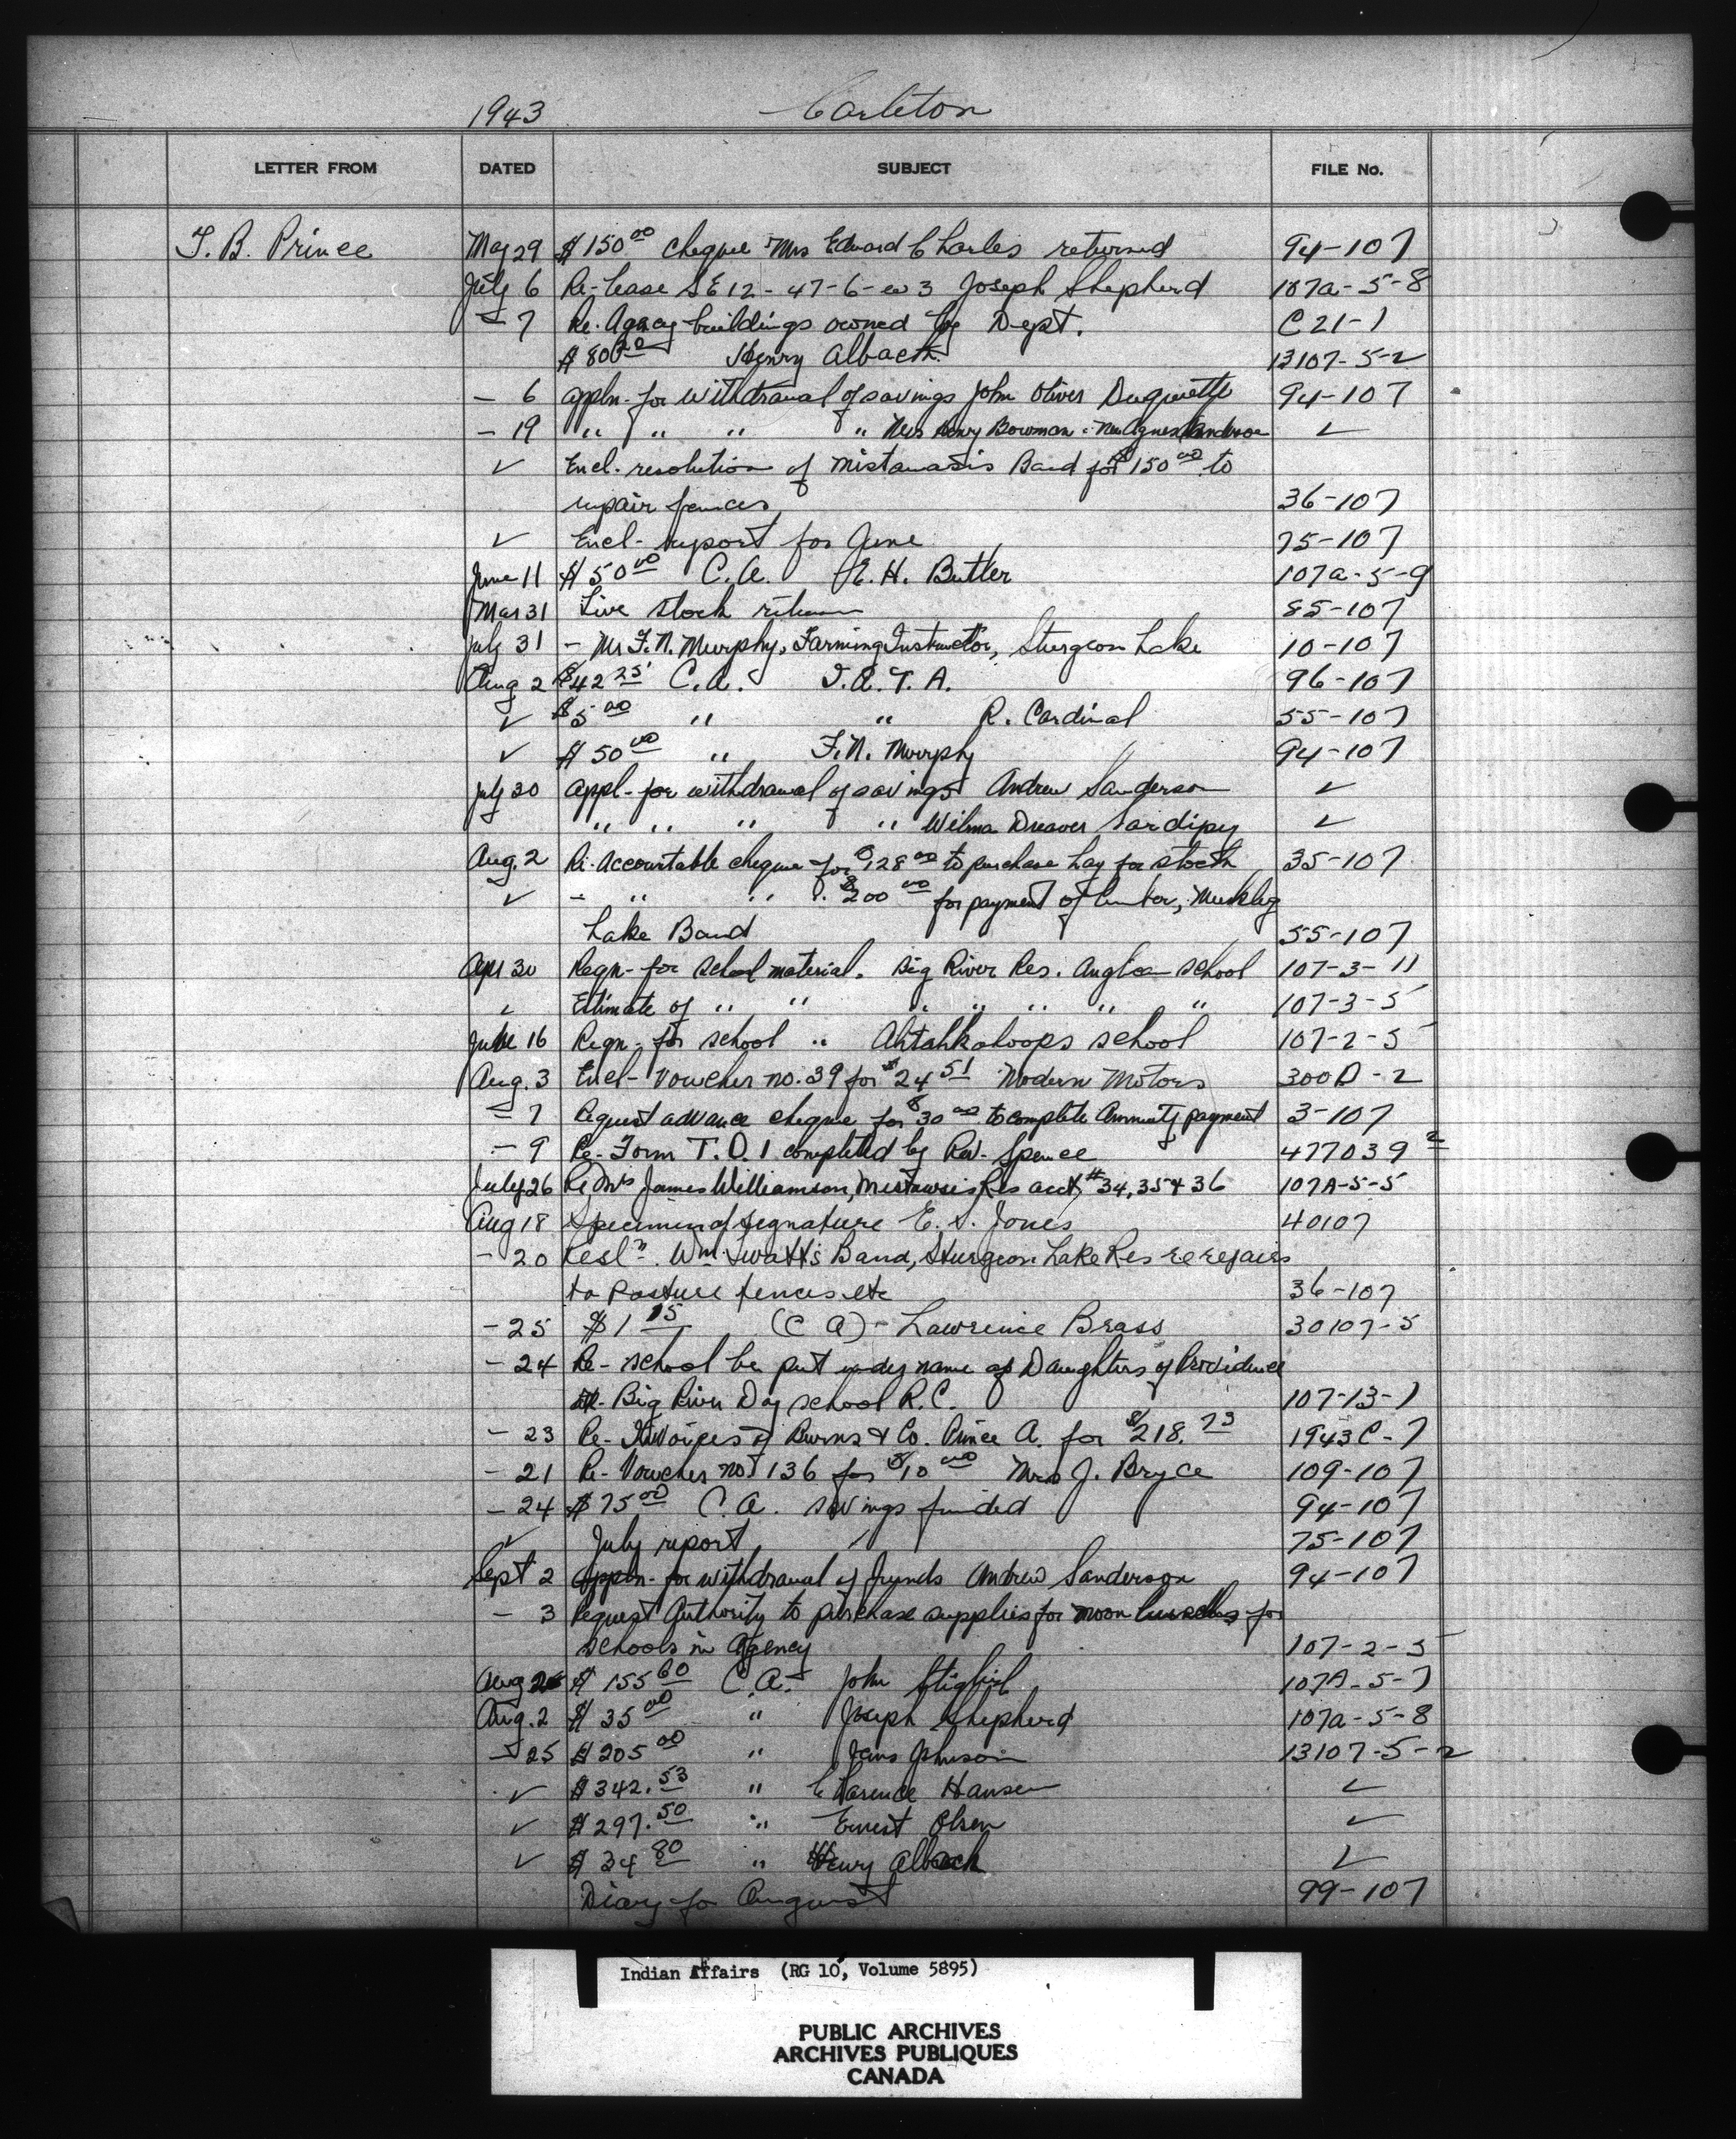 1943 Carleton
LETTER FROM DATED SUBJECT FILE No.
T. B. Prince May 29 $150 00 Cheque Mrs Edward Charles returned 94-107
July 6 Re-Lease SE12-47-6-w3 Joseph Shepherd 107a-5-8
- 7 Re. Agency buildings owned by Dept. C21-1
$80 20 Henry Albach 13107-5-2
- 6 appln- for withdrawal of savings John Oliver Duquette 94-107
- 19 " " " " Mrs Henry Bowman Mrs Agnes Sanderson ✓
✓ Encl. resolution of Mistawasis Band for $150 00 to
repair fences 36-107
✓ Encl- report for June 75-107
June 11 $50 00 C.A. E. H. Butler 107a-5-9
Mar 31 Live stock return 85-107
July 31 - Mr F. N. Murphy, Farming Instructor, Sturgeon Lake 10-107
Aug 2 $42 25 C.A. I.A.T.A. 96-107
✓ $5 00 " " R. Cardinal 55-107
✓ $50 00 " F. N. Murphy 94-107
July 30 appl- for withdrawal of savings Andrew Sanderson ✓
" " " " Wilma Dreaver Sardipy ✓
Aug. 2 Re-Accountable cheque for $128 00 to purchase hay for stock 35-107
✓ - " " " $200 00 for payment of lumber, Muskeg
Lake Band 55-107
Apl 30 Reqn- for school material. Big River Res. Anglican school 107-3-11
✓ Estimate of " " " " " " " 107-3-5
June 16 Reqn- for school " Ahtahkakoops school 107-2-5
Aug. 3 Encl- Voucher no. 39 for $24 51 Modern Motors 300D-2
- 7 Request advance cheque for $30 00 to complete Annuity payment 3-107
- 9 Re-Form T.D.1 completed by Rev. Spence 477039 2
July 26 Re Mrs James Williamson, Mistawasis Res acct, #34, 35 + 36 107A-5-5
Aug 18 Specimen of signature E. S. Jones 40107
- 20 Resln. Wm. Twatt's Band, Sturgeon Lake Res re repairs
to pasture fences etc 36-107
- 25 $1 15 (C A) - Lawrence Brass 30107-5
- 24 Re- school be put under name of Daughters of Providence
Big River Day school R.C. 107-13-1
- 23 Re- Invoices of Burns & Co. Prince A. for $218.73 1943C-7
- 21 Re- Voucher no. 136 for $10 00 Mrs J. Bryce 109-107
- 24 $75 00 C.A. savings funded 94-107
✓ July report 75-107
Sept 2 Appln- for withdrawal of funds Andrew Sanderson 94-107
- 3 Request Authority to purchase supplies for noon lunches for
schools in Agency 107-2-5
Aug $155 60 C.A. John 107A-5-7
Aug. 2 $35 00 " Joseph Shepherd 107a-5-8
- 25 $205 00 " Jens Johnson 13107-5-2
✓ $342.53 " Clarence Hansen ✓
✓ $297.50 " Ernest Olsen ✓
✓ $34 80 " Henry Albach ✓
Diary for August 99-107
Indian Affairs (RG 10, Volume 5895)
PUBLIC ARCHIVES
ARCHIVES PUBLIQUES
CANADA